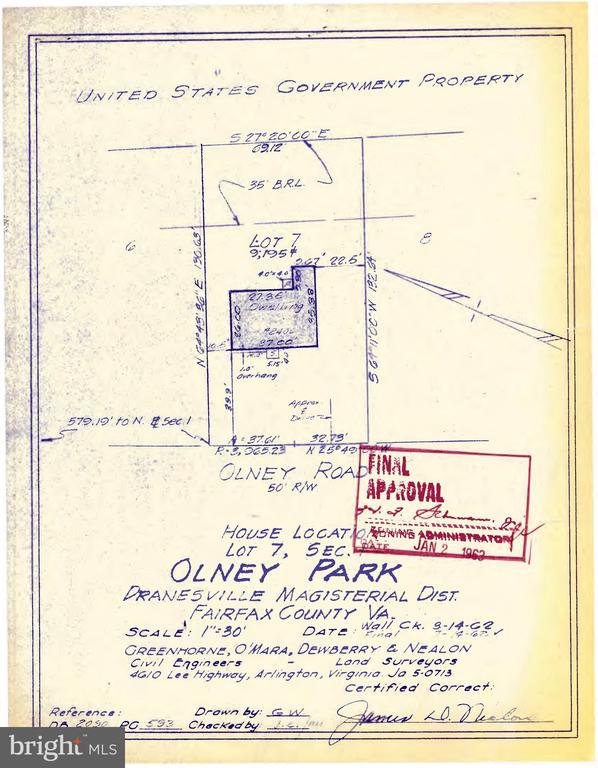 UNITED STATES GOVERNMENT PROPERTY
S 27° 20' 00" E
69.12'
35' B.R.L.
6
LOT 7
8
2.67' 22.5'
4.0'x4.0'
27.35'
Dwelling
26.00
#2406
37.00
10.5'
5.15'
1.0'
Overhang
39.9'
Approx
Drive
579.19' to N. Sec. 1
A = 37.61' 32.73'
R = 3,065.23 N 25° 49'
OLNEY ROAD
50' R/W
FINAL
APPROVAL
ZONING ADMINISTRATOR
DATE JAN 2 1963
HOUSE LOCATION
LOT 7, SEC.
OLNEY PARK
DRANESVILLE MAGISTERIAL DIST.
FAIRFAX COUNTY VA.
SCALE: 1"=30' DATE: Wall Ck. 8-14-62
Final
GREENHORNE, O'MARA, DEWBERRY & NEALON
Civil Engineers - Land Surveyors
4610 Lee Highway, Arlington, Virginia. Ja 5-0713
Certified Correct:
Reference: Drawn by: G.W.
DB 2090 PG 593 Checked by:
James D. Nealon
bright MLS